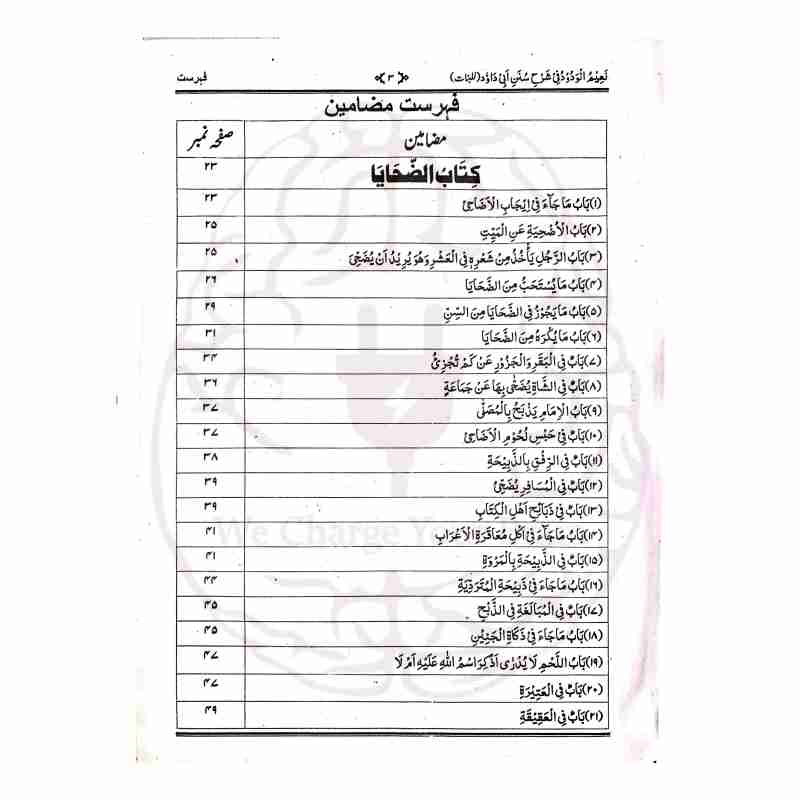 نَعِيْمُ الْوَدُوْدُ فِيْ شَرْحِ سُنَنِ اَبِيْ دَاوٗد (للبنات) ﴿۳﴾ فہرست
فہرست مضامین
مضامین صفحہ نمبر
كِتَابُ الضَّحَايَا ۲۳
(۱) بَابُ مَا جَآءَ فِيْ اِيْجَابِ الْاَضَاحِيْ ۲۳
(۲) بَابُ الْاُضْحِيَةِ عَنِ الْمَيِّتِ ۲۵
(۳) بَابُ الرَّجُلِ يَأْخُذُ مِنْ شَعْرِهٖ فِي الْعَشْرِ وَهُوَ يُرِيْدُ اَنْ يُضَحِّيَ ۲۵
(۴) بَابُ مَا يُسْتَحَبُّ مِنَ الضَّحَايَا ۲۶
(۵) بَابُ مَا يَجُوْزُ فِي الضَّحَايَا مِنَ السِّنِّ ۲۹
(۶) بَابُ مَا يُكْرَهُ مِنَ الضَّحَايَا ۳۱
(۷) بَابٌ فِي الْبَقَرِ وَالْجَزُوْرِ عَنْ كَمْ تُجْزِئُ ۳۴
(۸) بَابٌ فِي الشَّاةِ يُضَحّٰى بِهَا عَنْ جَمَاعَةٍ ۳۶
(۹) بَابُ الْاِمَامِ يَذْبَحُ بِالْمُصَلّٰى ۳۷
(۱۰) بَابٌ فِيْ حَبْسِ لُحُوْمِ الْاَضَاحِيْ ۳۷
(۱۱) بَابٌ فِي الرِّفْقِ بِالذَّبِيْحَةِ ۳۸
(۱۲) بَابٌ فِي الْمُسَافِرِ يُضَحِّيْ ۳۹
(۱۳) بَابٌ فِيْ ذَبَائِحِ اَهْلِ الْكِتَابِ ۳۹
(۱۴) بَابُ مَا جَآءَ فِيْ اَكْلِ مُعَاقَرَةِ الْاَعْرَابِ ۴۱
(۱۵) بَابٌ فِي الذَّبِيْحَةِ بِالْمَرْوَةِ ۴۱
(۱۶) بَابُ مَا جَاءَ فِيْ ذَبِيْحَةِ الْمُتَرَدِّيَةِ ۴۴
(۱۷) بَابٌ فِي الْمُبَالَغَةِ فِي الذَّبْحِ ۴۵
(۱۸) بَابُ مَا جَاءَ فِيْ ذَكَاةِ الْجَنِيْنِ ۴۵
(۱۹) بَابُ اللَّحْمِ لَا يُدْرٰى اَذُكِرَ اسْمُ اللّٰهِ عَلَيْهِ اَمْ لَا ۴۷
(۲۰) بَابٌ فِي الْعَتِيْرَةِ ۴۷
(۲۱) بَابٌ فِي الْعَقِيْقَةِ ۴۹
We Charge Yo